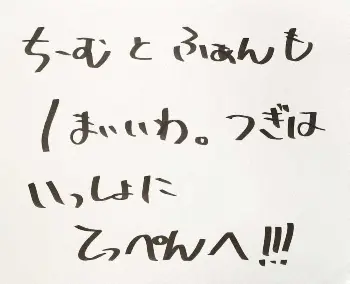 ちーむとふぁんも
1まいいわ。つぎは
いっしょに
てっぺんへ!!!